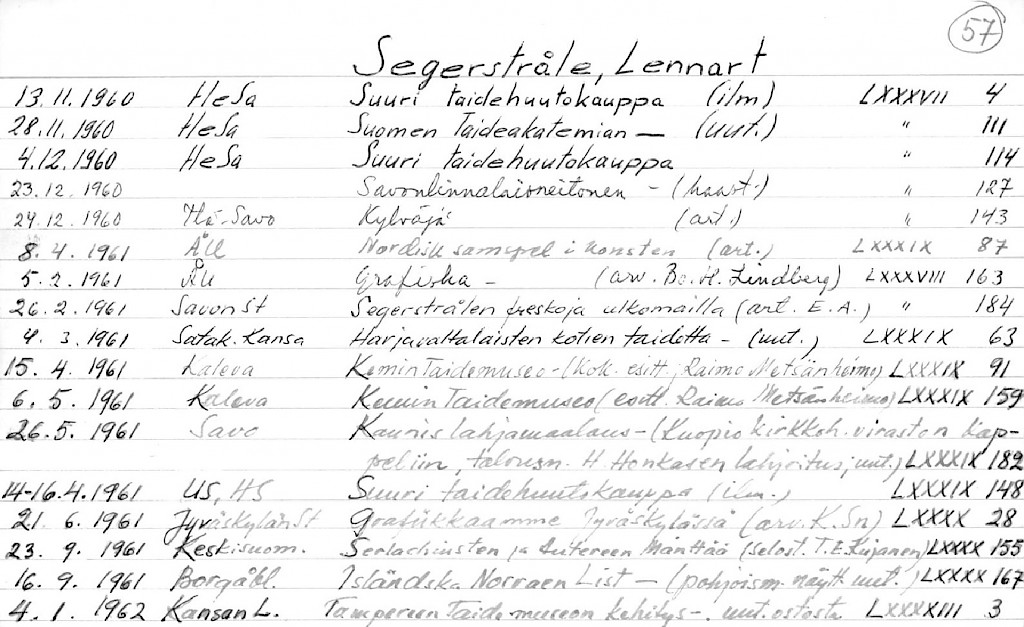 57
Segerstråle, Lennart
13.11.1960 HeSa Suuri taidehuutokauppa (ilm) LXXXVII 4
28.11.1960 HeSa Suomen Taideakatemian — (uut.) " 111
4.12.1960 HeSa Suuri taidehuutokauppa " 114
23.12.1960 Savonlinnalaisneitonen - (haast.) " 127
29.12.1960 Itä-Savo Kylväjä (art.) " 143
8.4.1961 ÅU Nordisk samspel i konsten (art.) LXXXIX 87
5.2.1961 ÅU Grafiska - (arv. Bo. H. Lindberg) LXXXVIII 163
26.2.1961 Savon St Segerstrålen freskoja ulkomailla (art. E.A.) " 184
4.3.1961 Satak. Kansa Harjavaltalaisten kotien taidetta - (uut.) LXXXIX 63
15.4.1961 Kaleva Kemin Taidemuseo - (kok. esitt. Raimo Metsänheimo) LXXXIX 91
6.5.1961 Kaleva Kemin Taidemuseo (esitt. Raimo Metsänheimo) LXXXIX 159
26.5.1961 Savo Kaunis lahjamaalaus - (Kuopio kirkkoh. viraston kap-
peliin, talousn. H. Honkasen lahjoitus, uut.) LXXXIX 182
14-16.4.1961 US, HS Suuri taidehuutokauppa (ilm.) LXXXIX 148
21.6.1961 Jyväskylän St Grafiikkaamme Jyväskylässä (arv. K. Sn) LXXXX 28
23.9.1961 Keskisuom. Serlachiusten ja Autereen Mänttää (selost. T.E. Kirjanen) LXXXX 155
16.9.1961 Borgåbl. Isländska Norraen List - (pohjoism. näytt. uut.) LXXXX 167
4.1.1962 Kansan L. Tampereen Taidemuseon kehitys -, uut. ostosta LXXXXIII 3